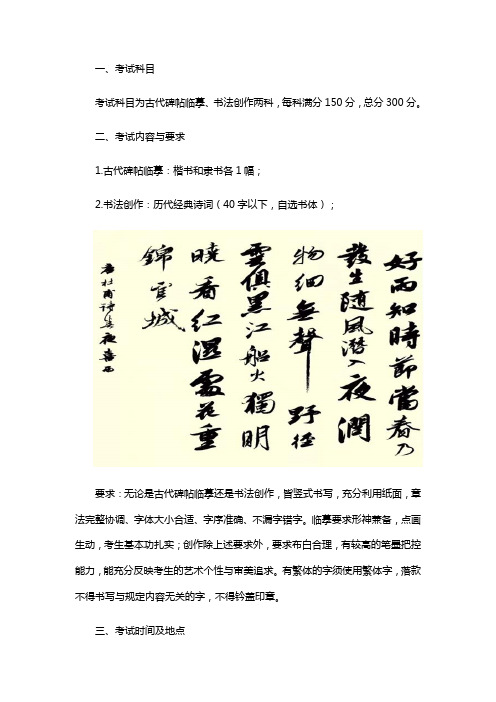 一、考试科目
考试科目为古代碑帖临摹、书法创作两科，每科满分150分，总分300分。
二、考试内容与要求
1.古代碑帖临摹：楷书和隶书各1幅；
2.书法创作：历代经典诗词（40字以下，自选书体）；
好雨知時節當春乃
發生随風潛入夜潤
物细無聲野径
雲俱黑江船火獨明
曉看紅濕處花重
錦官城
杜甫诗春夜喜雨
要求：无论是古代碑帖临摹还是书法创作，皆竖式书写，充分利用纸面，章
法完整协调、字体大小合适、字序准确、不漏字错字。临摹要求形神兼备，点画
生动，考生基本功扎实；创作除上述要求外，要求布白合理，有较高的笔墨把控
能力，能充分反映考生的艺术个性与审美追求。有繁体的字须使用繁体字，落款
不得书写与规定内容无关的字，不得钤盖印章。
三、考试时间及地点